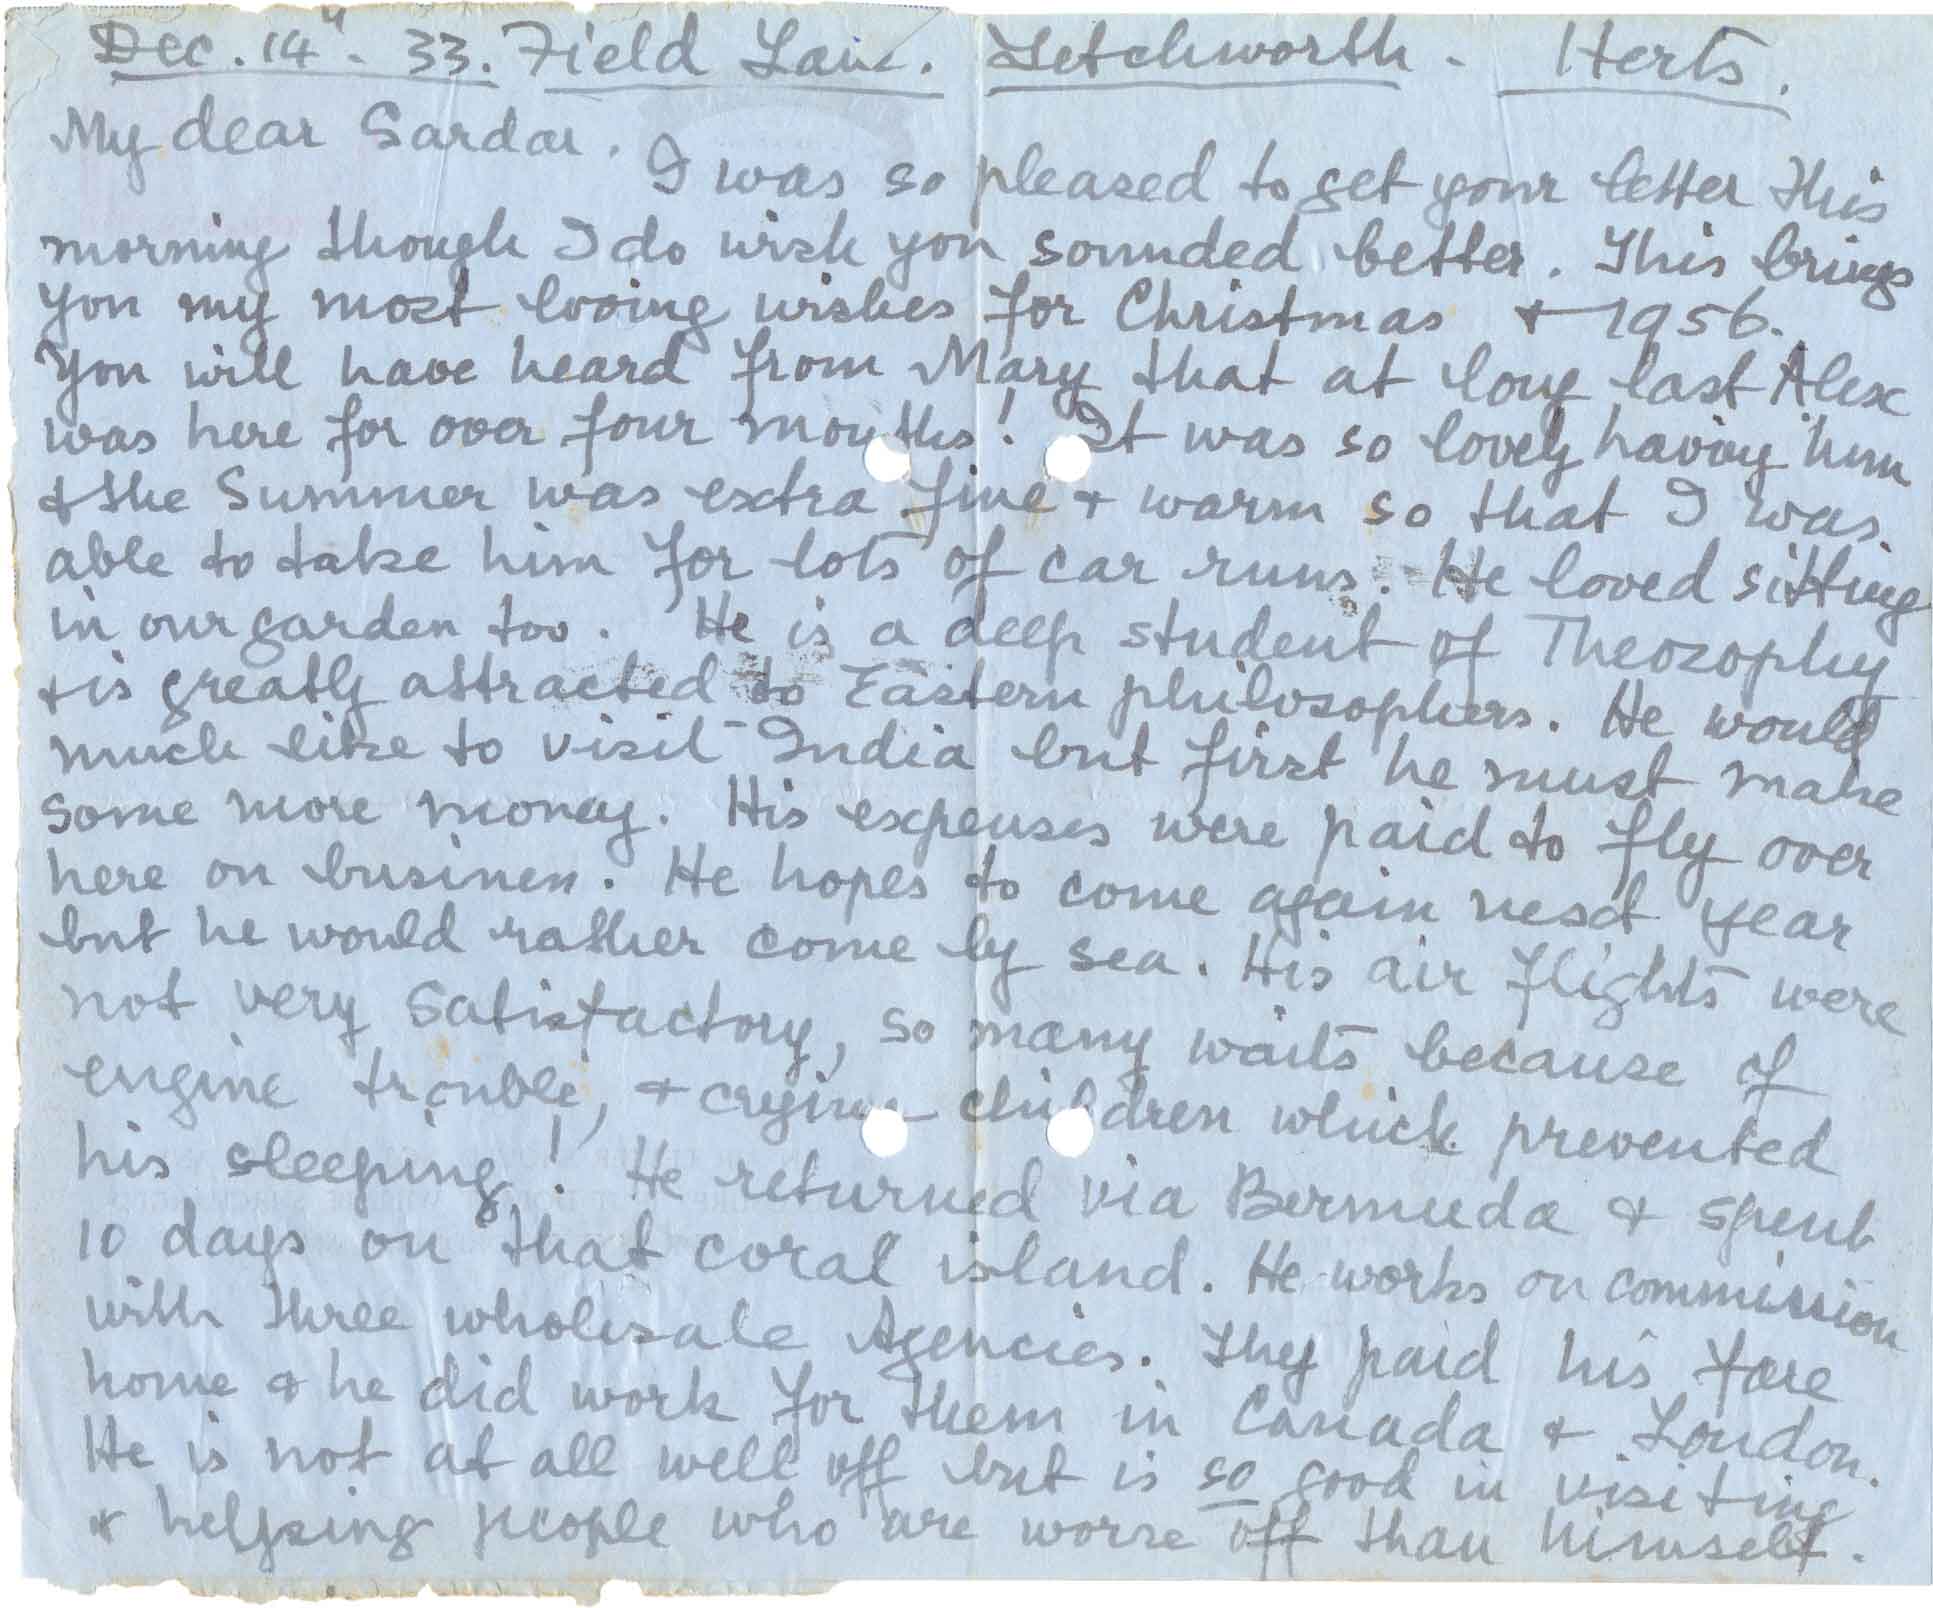 Dec. 14" - 33. Field Lane. Letchworth - Herts.
My dear Sardar.
I was so pleased to get your letter this
morning though I do wish you sounded better. This brings
you my most loving wishes for Christmas & 1956.
You will have heard from Mary that at long last Alex
was here for over four months! It was so lovely having him
& the Summer was extra fine & warm so that I was
able to take him for lots of car runs. He loved sitting
in our garden too. He is a deep student of Theosophy
& is greatly attracted to Eastern philosophers. He would
much like to visit India but first he must make
some more money. His expenses were paid to fly over
here on business. He hopes to come again next year
but he would rather come by sea. His air flights were
not very satisfactory, so many waits because of
engine trouble, & crying children which prevented
his sleeping! He returned via Bermuda & spent
10 days on that coral island. He works on commission
with three wholesale Agencies. They paid his fare
home & he did work for them in Canada & London.
He is not at all well off but is so good in visiting
& helping people who are worse off than himself.